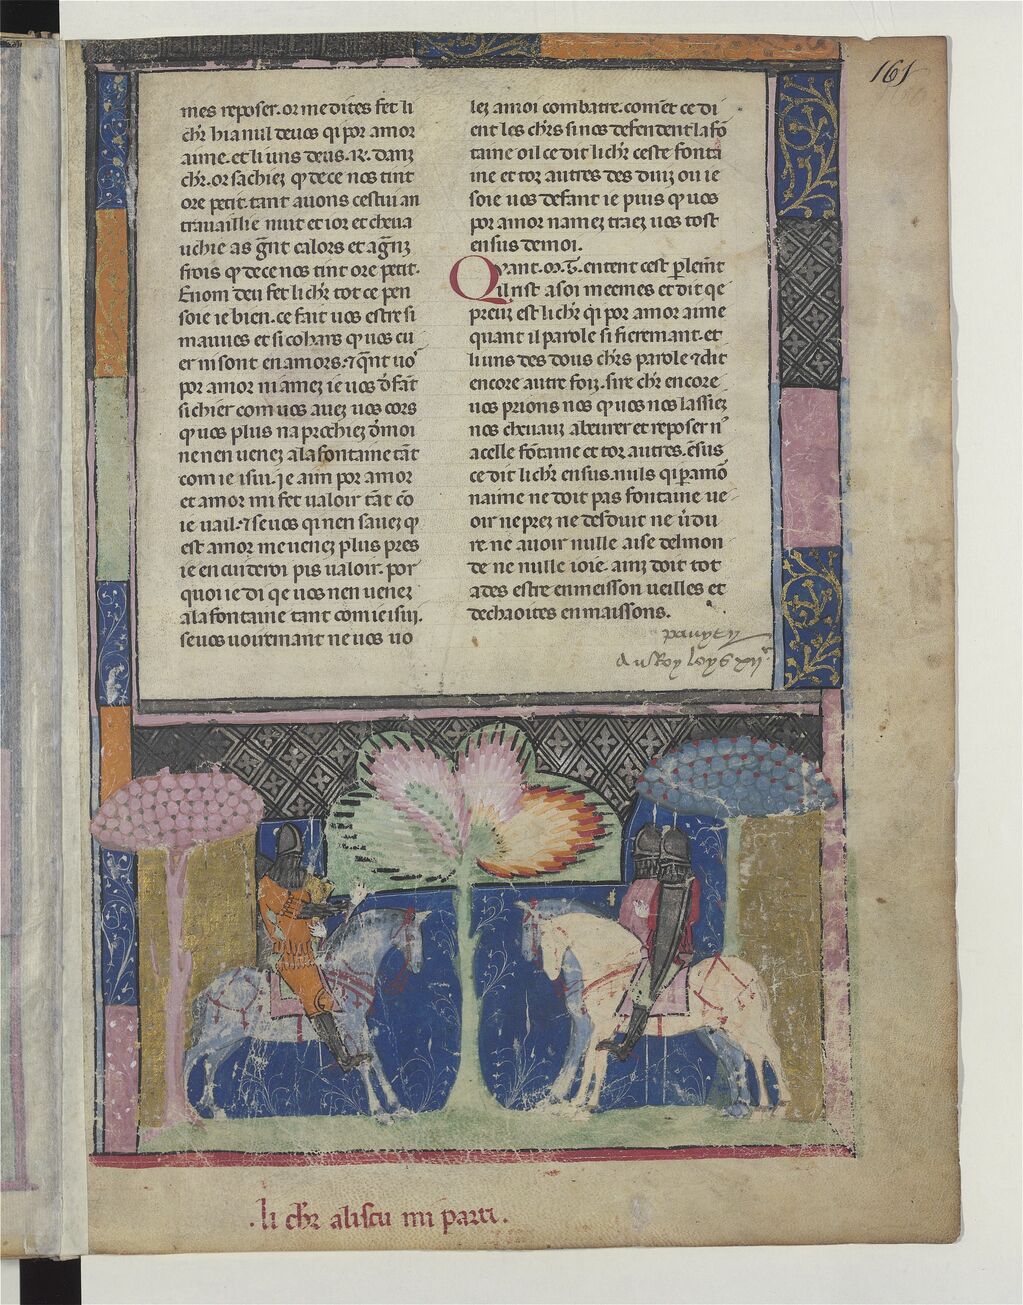 161
mes reposer. or me dites fet li
ch̅r hia nul deuos qi por amor
aime. et li uns deus .R. danz
ch̅r. or sachiez q̅ de ce nos tint
ore petit. tant auons cestui an
trauaillie nuit et ior et cheua
uchie as g̅nt calors et ag̅nz
frois q̅ de ce nos tint ore petit.
Enom deu fet li ch̅r tot ce pen
soie ie bien. ce fait uos estre si
mauues et si cohars q̅ uos cu
er ni sont en amors. ⁊ q̅nt uo᷒
por amor ni amez ie uos d̅fāt
si chier com uos auez uos cors
q̅ uos plus naprochiez d̅ moi
ne nen uenez ala fontaine tāt
com ie isui. ie aim por amor
et amor mi fet ualoir tāt cō
ie uail. ⁊ se uos qi nen sauez q̅
est amor me uenez plus pres
ie en cuideroi pis ualoir. por
quoi ie di qe uos nen uenez
ala fontaine tant com ie isui.
se uos uoiremant ne uos uo
lez amoi combatre. coment ce di
ent les ch̅rs si nos defendent la fō
taine oil ce dit li ch̅r ceste fonta
ine et toz autres des duiz ou ie
soie uos defant ie puis q̅ uos
por amor namez traez uos tost
ensus de moi.
Quant .m̅. G̅. entent cest pleint
Qil nst a soi meemes et dit qe
preuz est li ch̅r qi por amor aime
quant il parole si fierement. et
li uns des dous ch̅rs parole ⁊ dit
encore autre foiz. sire ch̅r encore
uos prions nos q̅ uos nos lassiez
nos cheuaux abeurer et reposer n
acelle fōtaine et toz autres. ēsus
ce dit li ch̅r ensus. nuls qi p̲ amō
naime ne doit pas fontaine ue
oir ne prez ne desduit ne u̅du
re. ne auoir nulle aise del mon
de ne nulle ioie. ainz doit tot
ades estre en meisson ueilles et
dechaoites en maussons.
pavye
Au Roy loys xii
. li ch̅r aliscu mi parti .